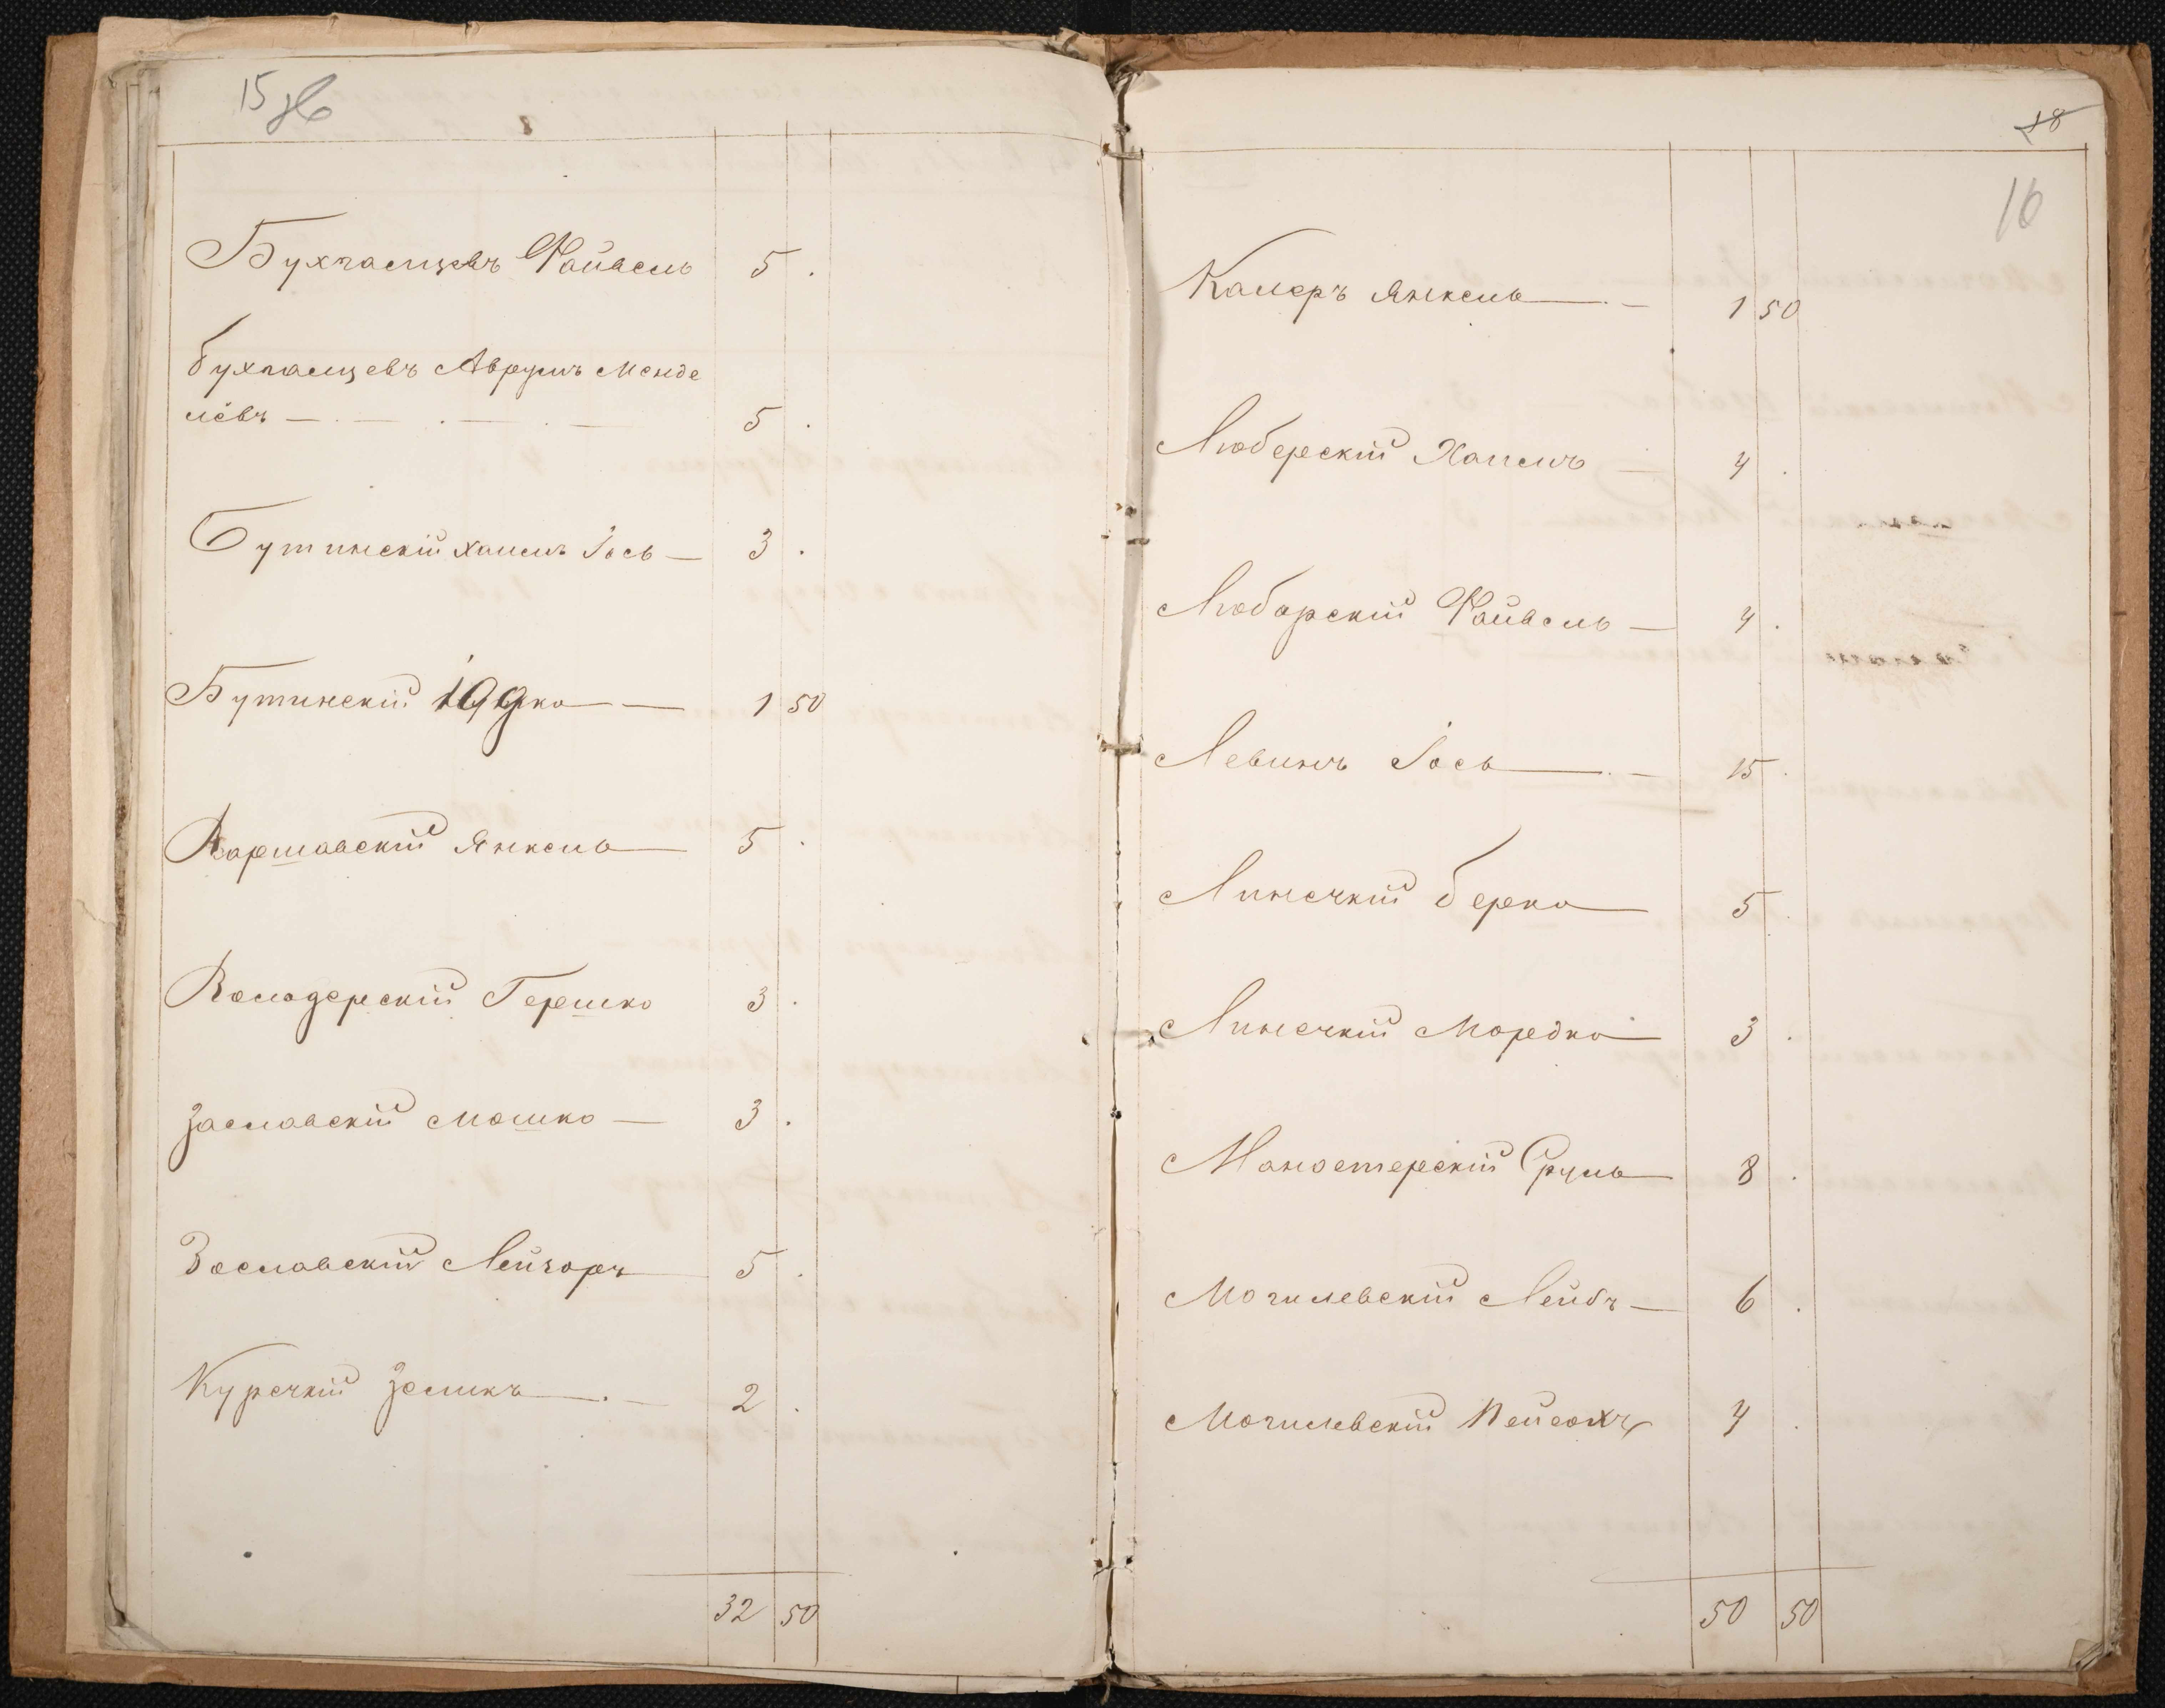 15 об
Бухгалцевъ Файвель 5 .
Бухгалцевъ Аврумъ Менде
левъ — 5 .
Бутинскій Хаимъ Іось — 3 .
Бутинскій — 1 50
Варшавскій Янкель — 5 .
Володерскій Гершко 3 .
Заславскій Мошко — 3 .
Заславскій Лейзоръ 5 .
Курецкій Зеликъ — 2 .
32 50
18
16
Калеръ Янкель — 1 50
Люберскій Хаимъ — 4 .
Любарскій Файвель — 4 .
Левинъ Іось — 15 .
Линецкій Берко — 5 .
Линецкій Мордко — 3 .
Манастерскій Сруль — 8 .
Могилевскій Лейбъ — 6 .
Могилевскій Пейсохъ 4 .
50 50